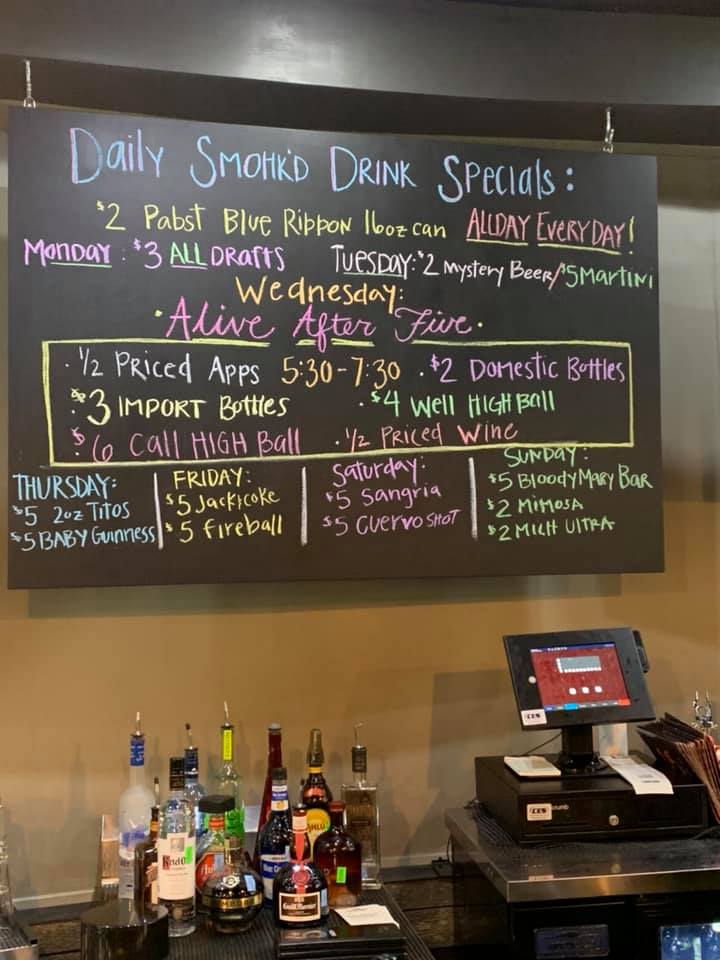 Daily SMOHK'D DRINK Specials:
$2 Pabst Blue Rippon 16oz can ALLDAY EVERYDAY!
Monday: $3 ALL DRAFTS
TUESDAY: $2 Mystery Beer/$5 MARTINI
Wednesday:
·Alive After Five·
· 1/2 Priced Apps 5:30-7:30 · $2 Domestic Bottles
· $3 IMPORT Bottles · $4 Well HIGH Ball
· $6 Call HIGH Ball · 1/2 Priced Wine
THURSDAY:
$5 2oz Titos
$5 BABY Guinness
FRIDAY:
$5 Jack & coke
$5 fireball
Saturday:
$5 Sangria
$5 Cuervo SHOT
SUNDAY:
$5 Bloody Mary Bar
$2 MiMOSA
$2 MICH ULTRA
CES
CES